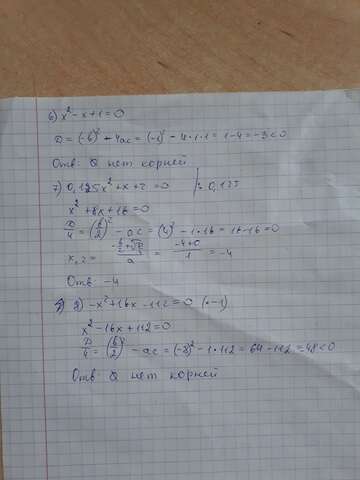 6) x² - x + 1 = 0
D = (-b)² - 4ac = (-1)² - 4·1·1 = 1-4 = -3 < 0
Отв: Q нет корней
7) 0,125x² + x + 2 = 0 |: 0,125
x² + 8x + 16 = 0
D/4 = (b/2)² - ac = (4)² - 1·16 = 16-16 = 0
x₁,₂ = (-b/2 ± √D)/a = (-4+0)/1 = -4
Отв -4
8) -x² + 16x - 112 = 0 (·-1)
x² - 16x + 112 = 0
D/4 = (b/2)² - ac = (-8)² - 1·112 = 64 - 112 = -48 < 0
Отв: Q нет корней